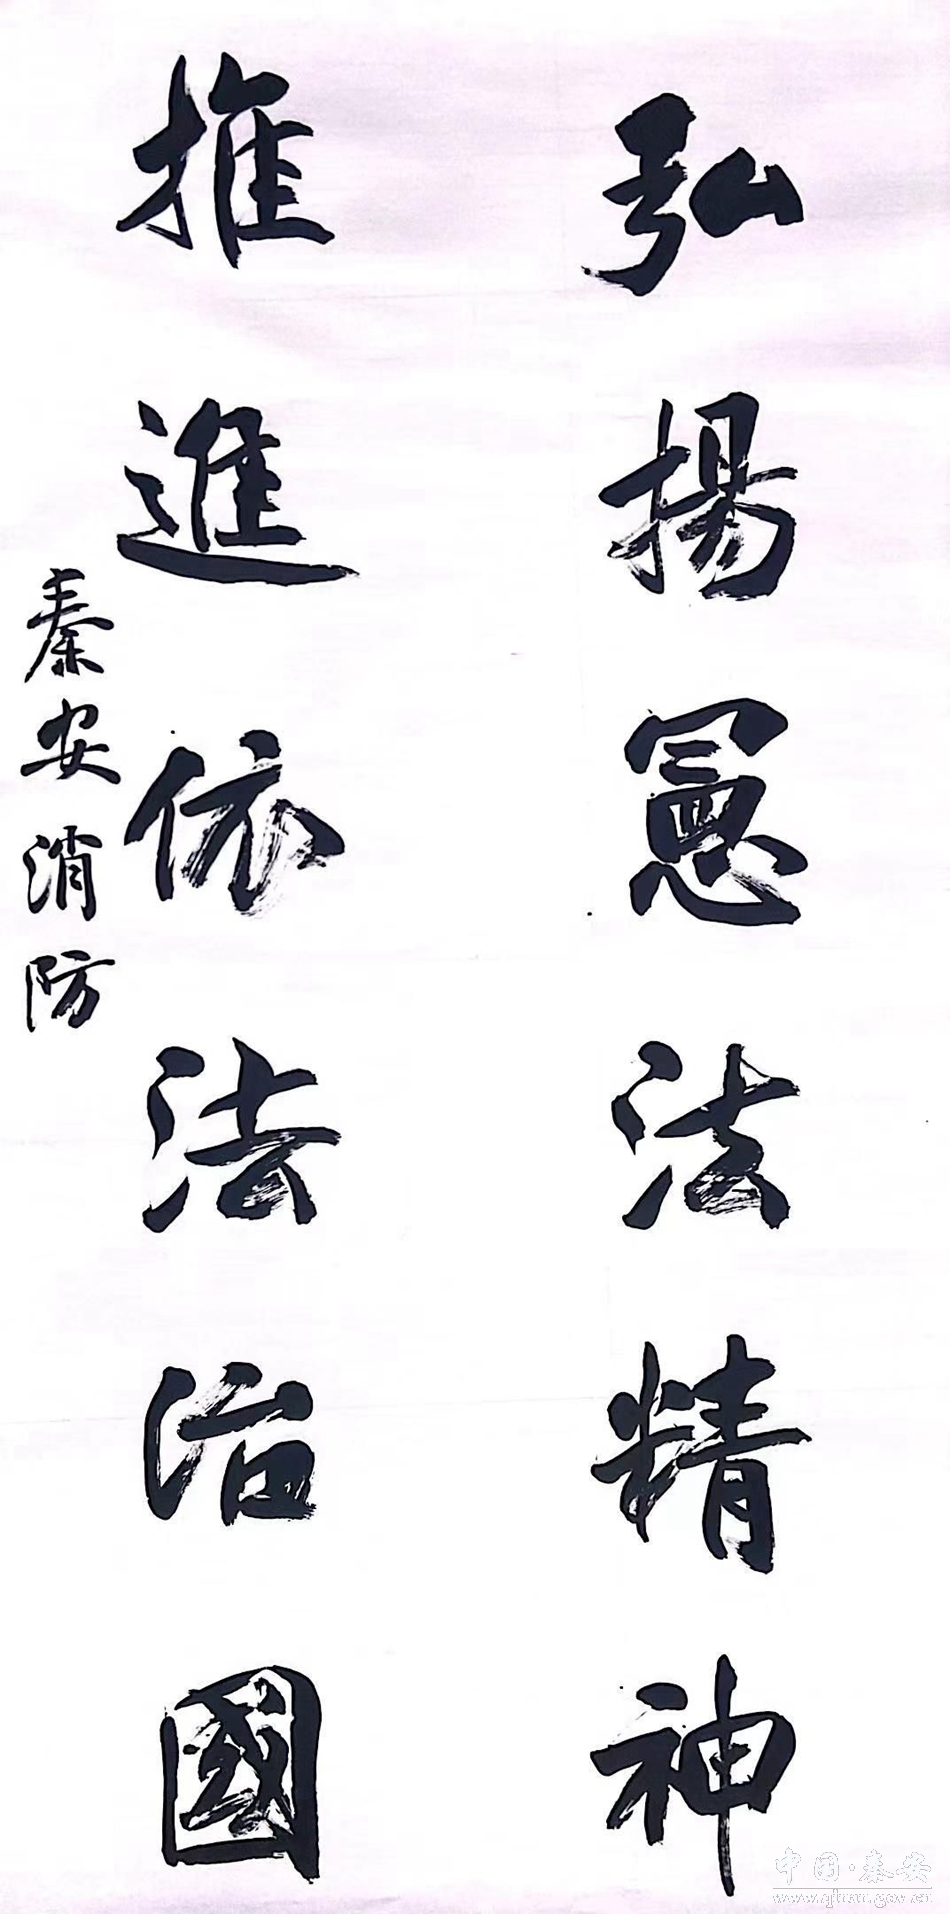 弘揚憲法精神
推進依法治國
秦安消防
中国·秦安
www.qinan.gov.cn